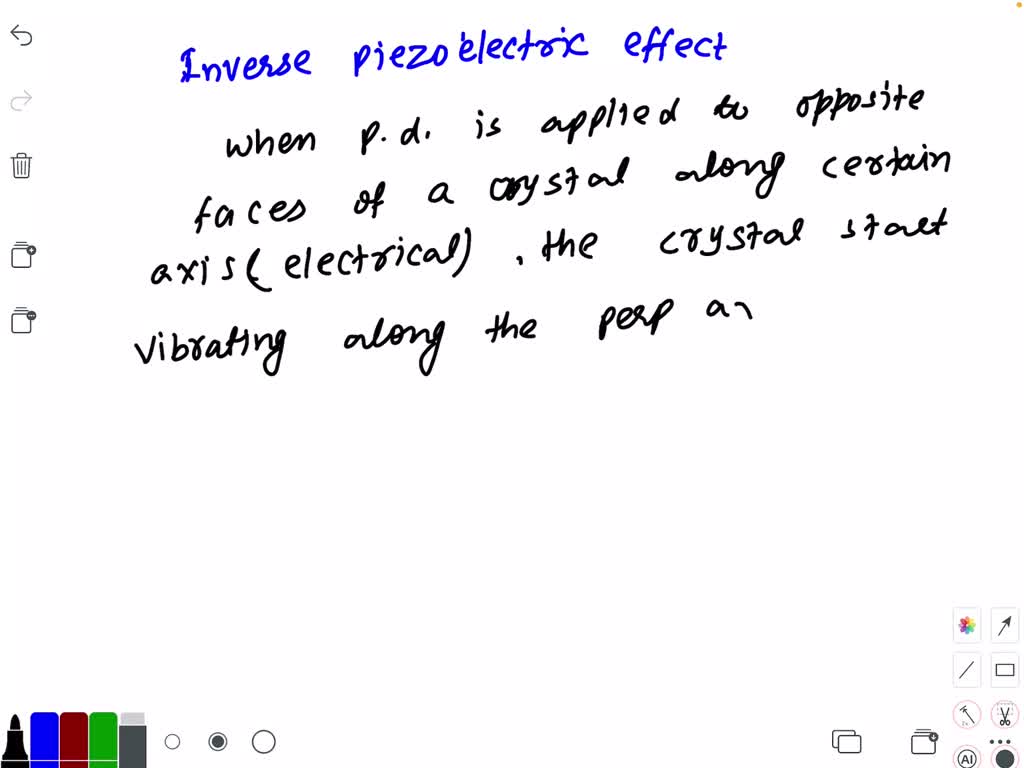 Inverse piezoelectric effect
when p.d. is applied to opposite
faces of a crystal along certain
axis (electrical), the crystal start
vibrating along the perp
AI